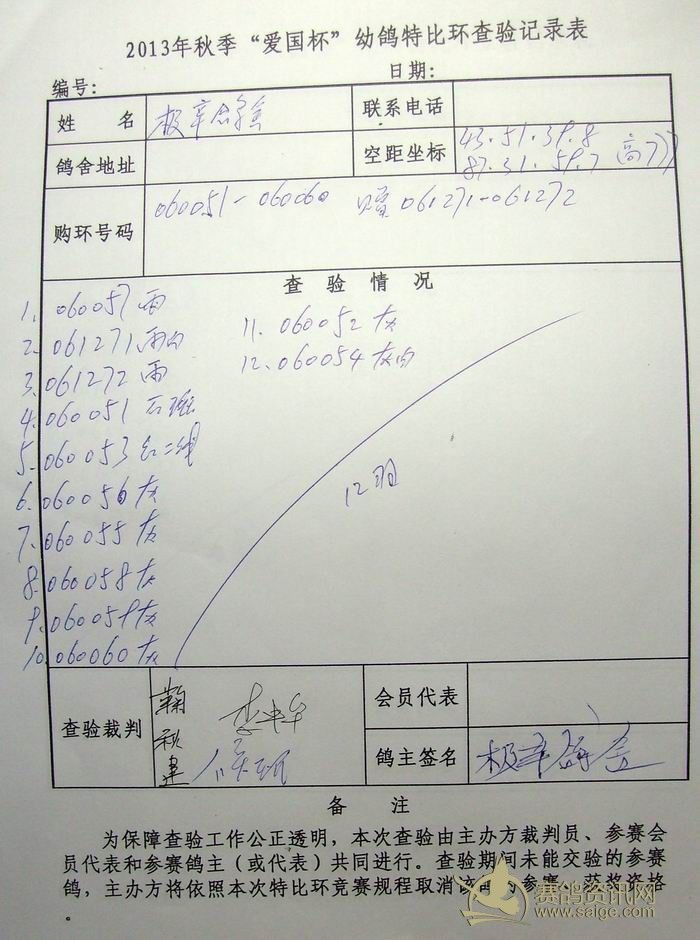 2013年秋季“爱国杯”幼鸽特比环查验记录表
编号: 日期:
姓 名 极宰鸽舍 联系电话
鸽舍地址 空距坐标 43.51.39.8
87.31.59.7 高777
购环号码 060051-060060 赠061271-061272
查验情况
1. 060057 雨
2. 061271 雨白
3. 061272 雨
4. 060051 石斑
5. 060053 红二线
6. 060056 灰
7. 060055 灰
8. 060058 灰
9. 060059 灰
10. 060060 灰
11. 060052 灰
12. 060054 灰白
12羽
查验裁判 鞠秋建 会员代表
鸽主签名 极宰鸽舍
备 注
为保障查验工作公正透明，本次查验由主办方裁判员、参赛会
员代表和参赛鸽主（或代表）共同进行。查验期间未能交验的参赛
鸽，主办方将依照本次特比环竞赛规程取消该羽的参赛、获奖资格
。
赛鸽资讯网
www.saige.com